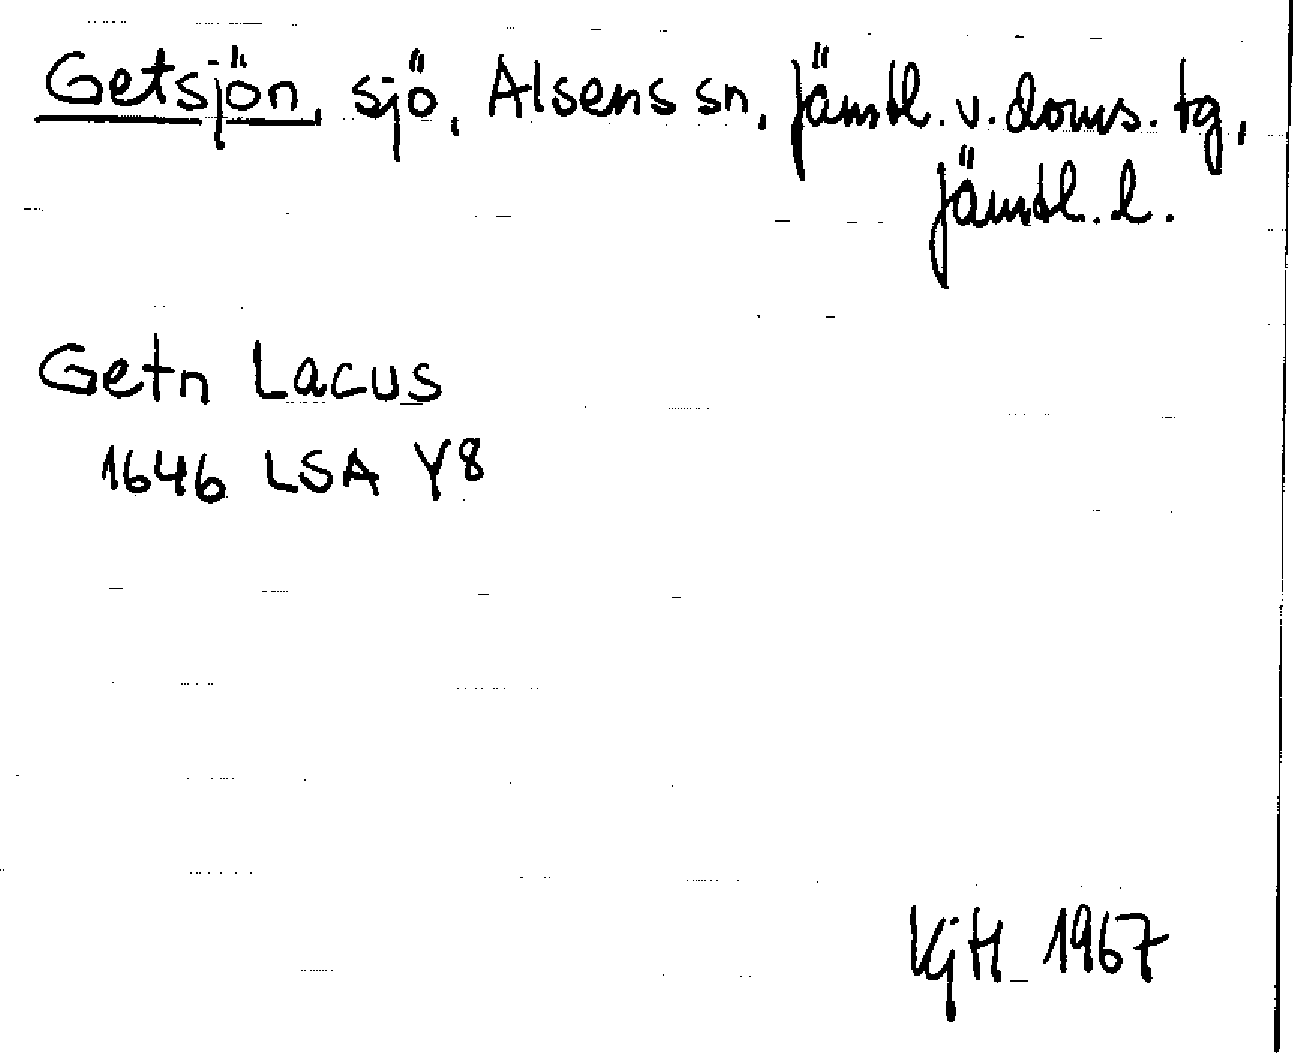 Getsjön, sjö, Alsens sn, Jämtl. v. doms. tg,
Jämtl. l.
Getn Lacus
1646 LSA Y8
KjH 1967